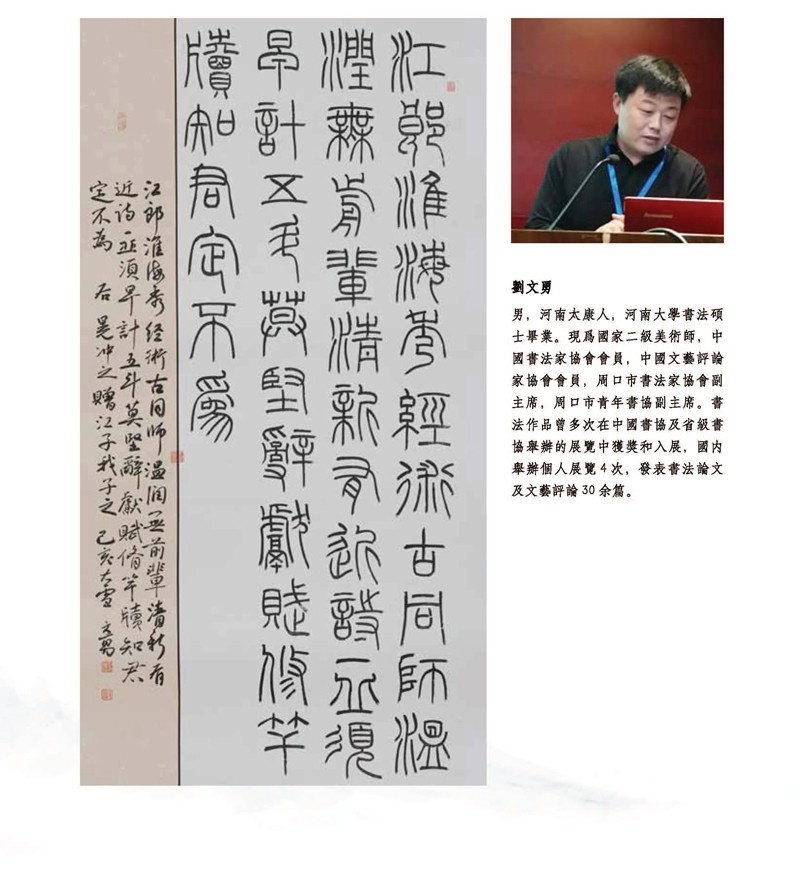 江郎淮海秀經術古同師溫
潤無前輩清新有近詩亟須
早計五斗莫堅辭獻賦修竿
牘知君定不為
江郎淮海秀經術古同師溫潤無前輩清新有
近詩亟須早計五斗莫堅辭獻賦脩竿牘知君
定不為 右晁冲之贈江子我子之 己亥大雪文勇
劉文勇
男，河南太康人，河南大學書法碩
士畢業。現爲國家二級美術師，中
國書法家協會會員，中國文藝評論
家協會會員，周口市書法家協會副
主席，周口市青年書協副主席。書
法作品曾多次在中國書協及省級書
協舉辦的展覽中獲獎和入展，國内
舉辦個人展覽 4 次，發表書法論文
及文藝評論 30 余篇。